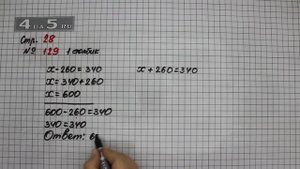 4 на 5.ru
Стр. 28
№ 129 1 столбик
x - 260 = 340
x = 340 + 260
x = 600
600 - 260 = 340
340 = 340
Ответ: 6
x + 260 = 340